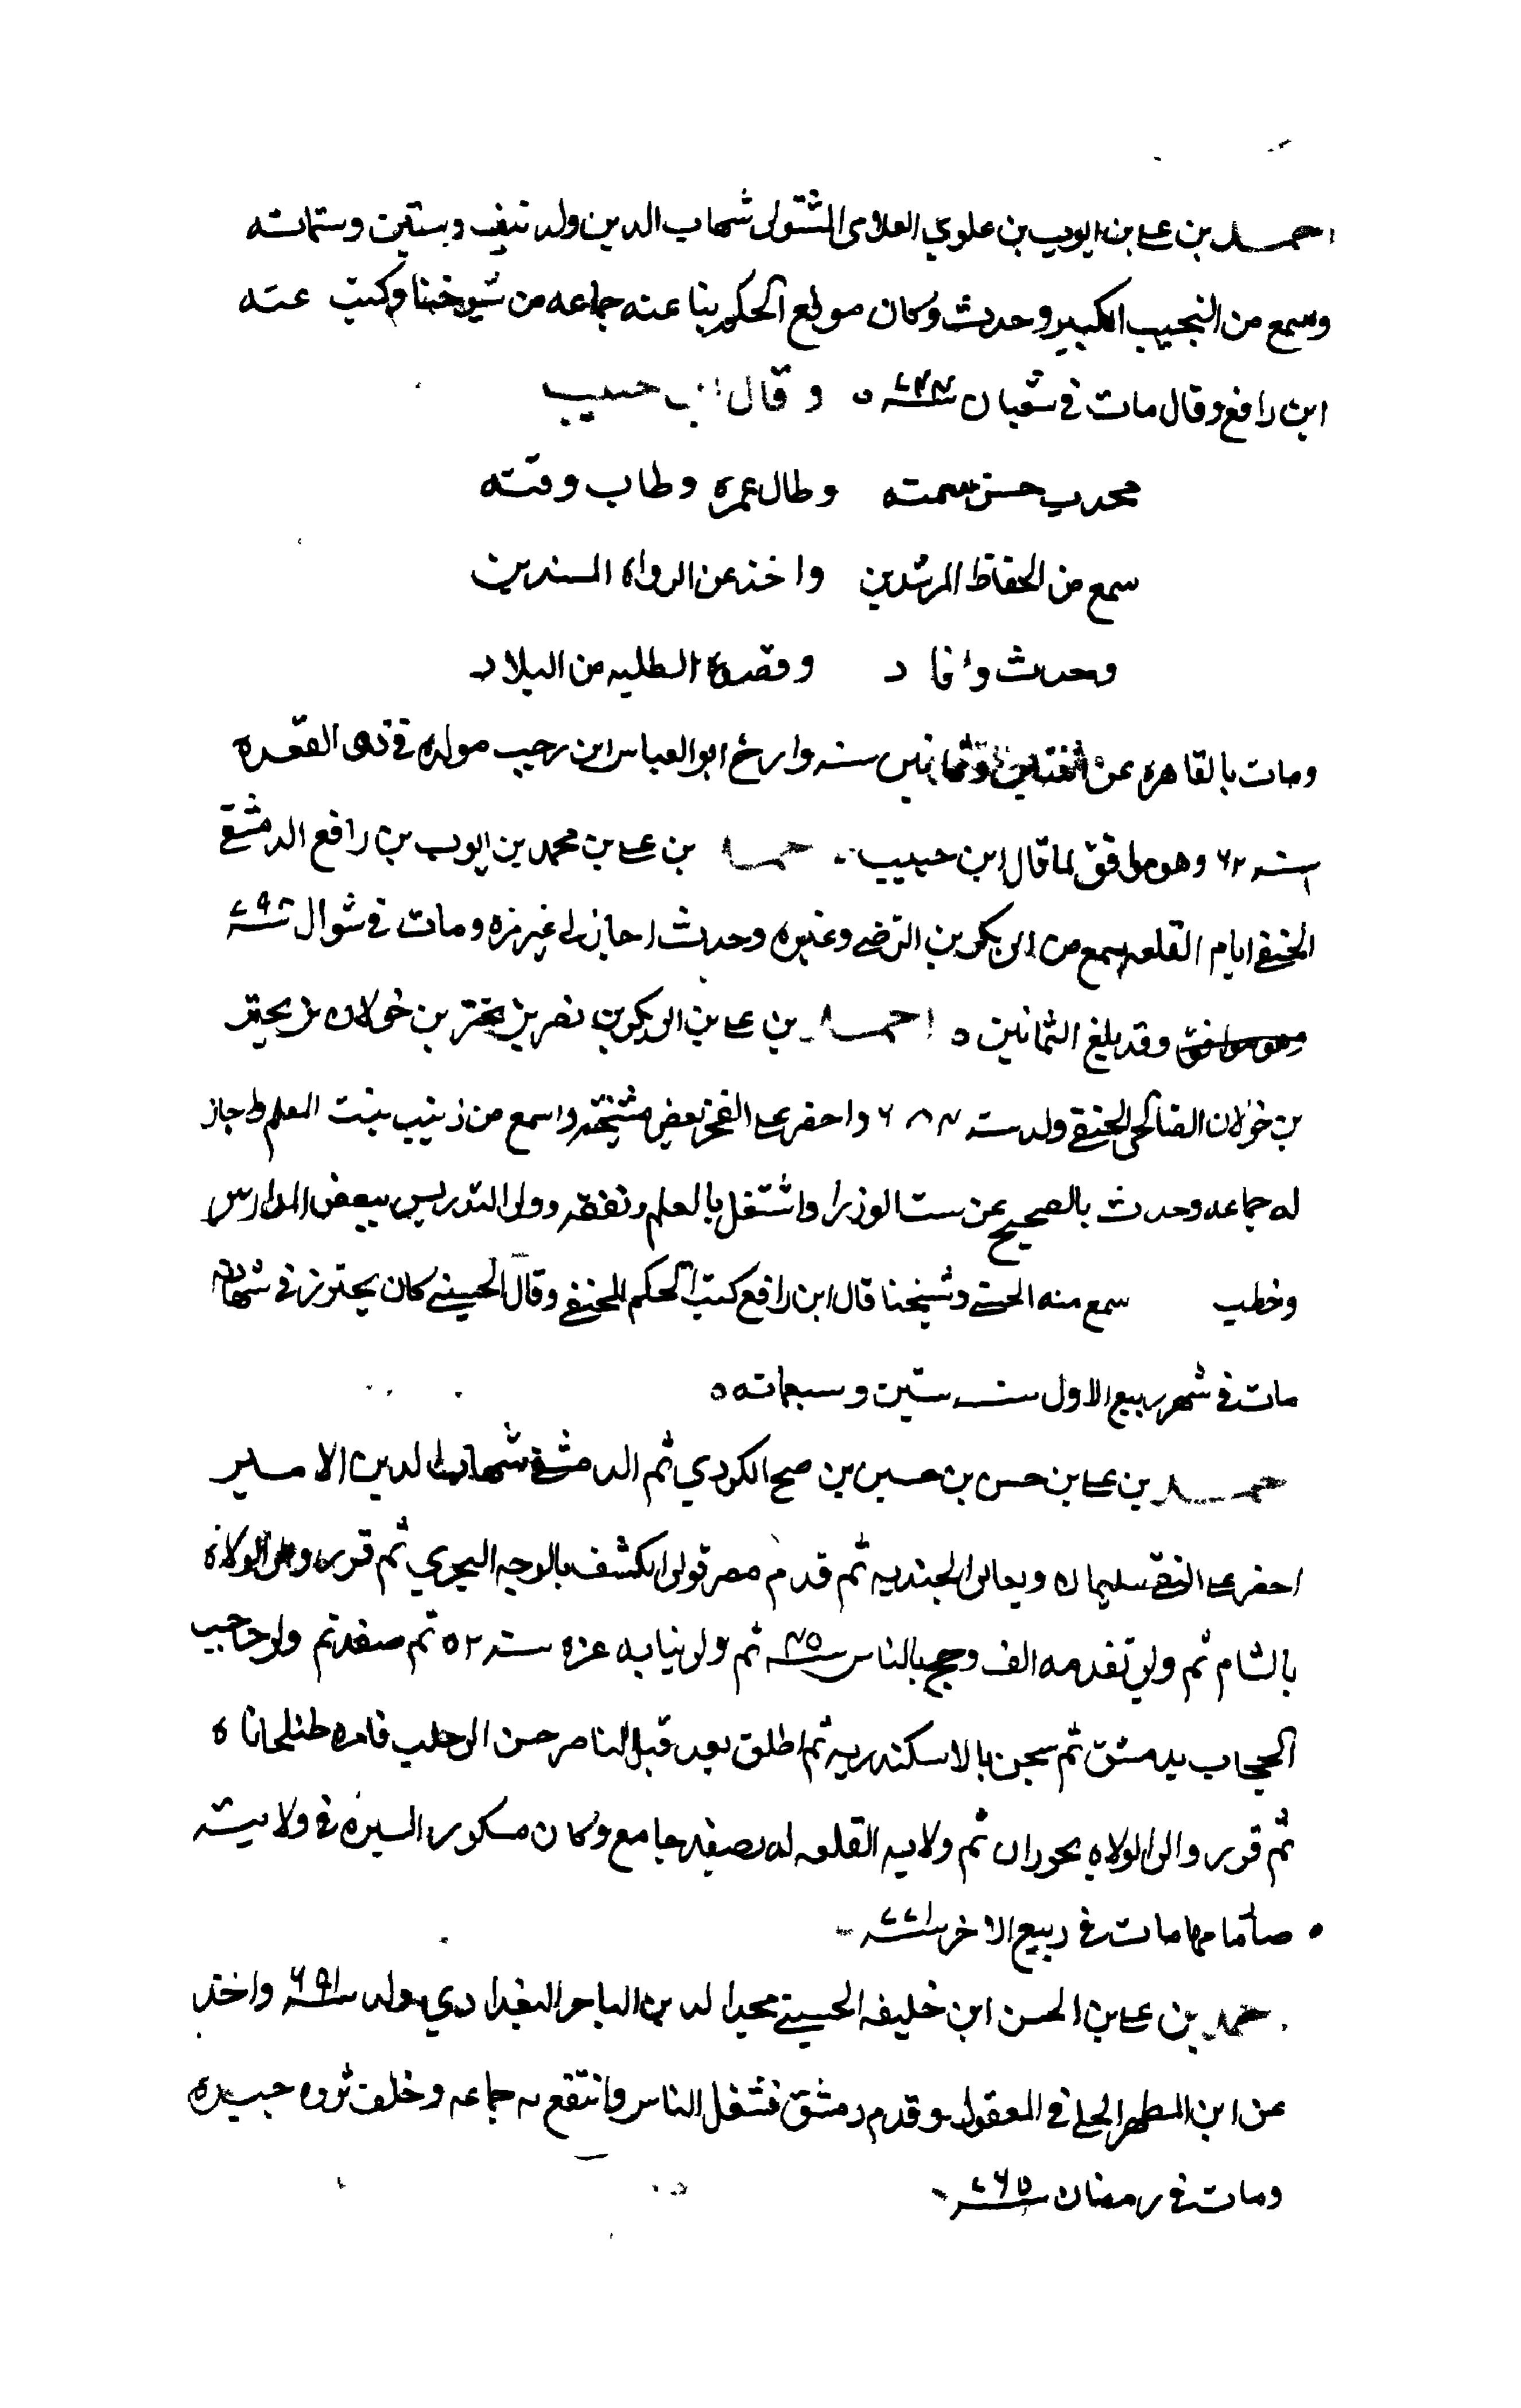 احمد بن علي بن ايوب بن علوي العلامي المشتولي شهاب الدين ولد نيف وستين وستمائه
وسمع من النجيب الكبير وحدث وكان موقع الحكم ثنا عنه جماعه من شيوخنا وكتب عنه
ابن رافع وقال مات في شعبان سنه ٧٤٤ ه وقال ابن حبيب
محدث حسن سمته وطال عمره وطاب وقته
سمع من الحفاظ المرشدين واخذ عن الرواه المسندين
وحدث وافاد وقصده الطلبه من البلاد
ومات بالقاهره عن اثنتين وثمانين سنه وارخ ابو العباس ابن رجب مولده في ذي القعده
سنه ٦٢ وهو موافق لما قال ابن حبيب احمد بن علي بن محمد بن ايوب بن رافع الدمشقي
الحنفي امام القلعه سمع من ابي بكر بن الرضي وغيره وحدث اجاز لي غير مره ومات في شوال سنه ٧٩٨
وهو موافق وقد بلغ الثمانين ه احمد بن علي بن ابي بكر بن نصر بن بحتر بن خولان بن بحتر
بن خولان الصالحي الحنفي ولد سنه ٦٨٤ واحضر علي الفخر بعض مشيخته واسمع من زينب بنت المعلم واجاز
له جماعه وحدث بالصحيح عن ست الوزرا واشتغل بالعلم وتفقه وولي التدريس ببعض المدارس
وخطب سمع منه الحسيني وشيخنا قال ابن رافع كتب الحكم للحنفي وقال الحسيني كان يحترز في شهادته
مات في شهر ربيع الاول سنه ستين وسبعمائه ه
احمد بن علي بن حسن بن حسين بن صبح الكردي ثم الدمشقي شهاب الدين الامير
احضر علي التقي سليمان وتعاني الجنديه ثم قدم مصر فولي الكشف بالوجه البحري ثم قرر والي الولاه
بالشام ثم ولي تقدمه الف وحج بالناس سنه ٤٥ ثم ولي نيابه غزه سنه ٥٢ ثم صفد ثم ولي حاجب
الحجاب بدمشق ثم سجن بالاسكندريه ثم اطلق بعد قتل الناصر حسن الي حلب فامره طبلخاناه
ثم قرر والي الولاه بحوران ثم ولايه القلعه له بصفد جامع وكان مشكور السيره في ولايته
صائما مها مات في ربيع الاخر سنه ٧٧١
احمد بن علي بن الحسن ابن خليفه الحسيني مجد الدين التاجر البغدادي ولد سنه ٦٩١ واخذ
عن ابن المطهر الحلي في المعقول وقدم دمشق فشغل الناس وانتفع به جماعه وخلف ثروه جيده
ومات في رمضان سنه ٧٦٥